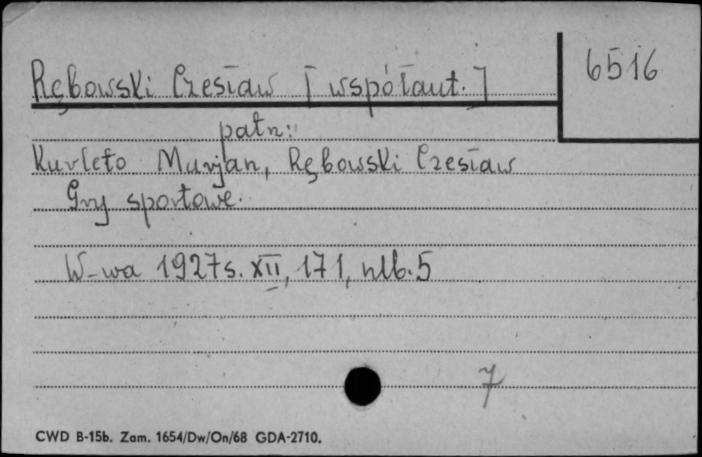 Rębowski Czesław [współaut.]
6516
patrz:
Kurleto Marjan, Rębowski Czesław
Gry sportowe.
W-wa 1927 s. XII, 171, nlb. 5
7
CWD B-15b. Zam. 1654/Dw/On/68 GDA-2710.